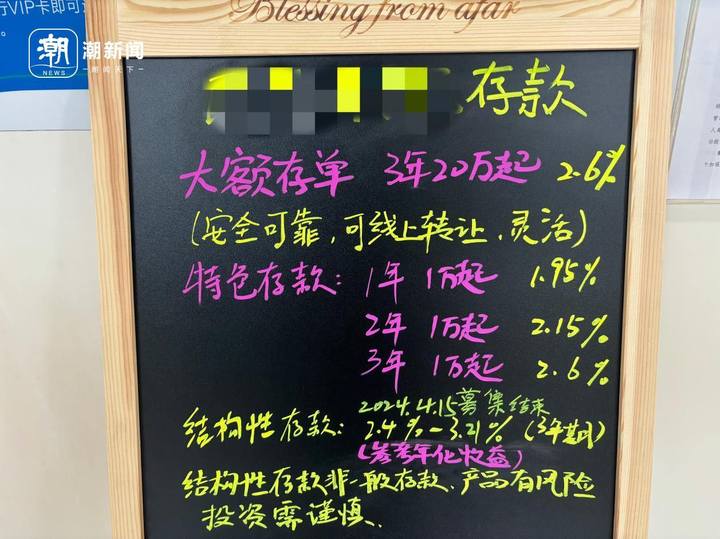 Blessing from afar
行VIP卡即可
潮
NEWS
潮新闻
存款
大额存单 3年20万起 2.6%
(安全可靠,可线上转让、灵活)
特色存款: 1年 1万起 1.95%
2年 1万起 2.15%
3年 1万起 2.6%
2024.4.15募集结束
结构性存款: 2.4%-3.21% (3年期)
(参考年化收益)
结构性存款非一般存款、产品有风险
投资需谨慎、